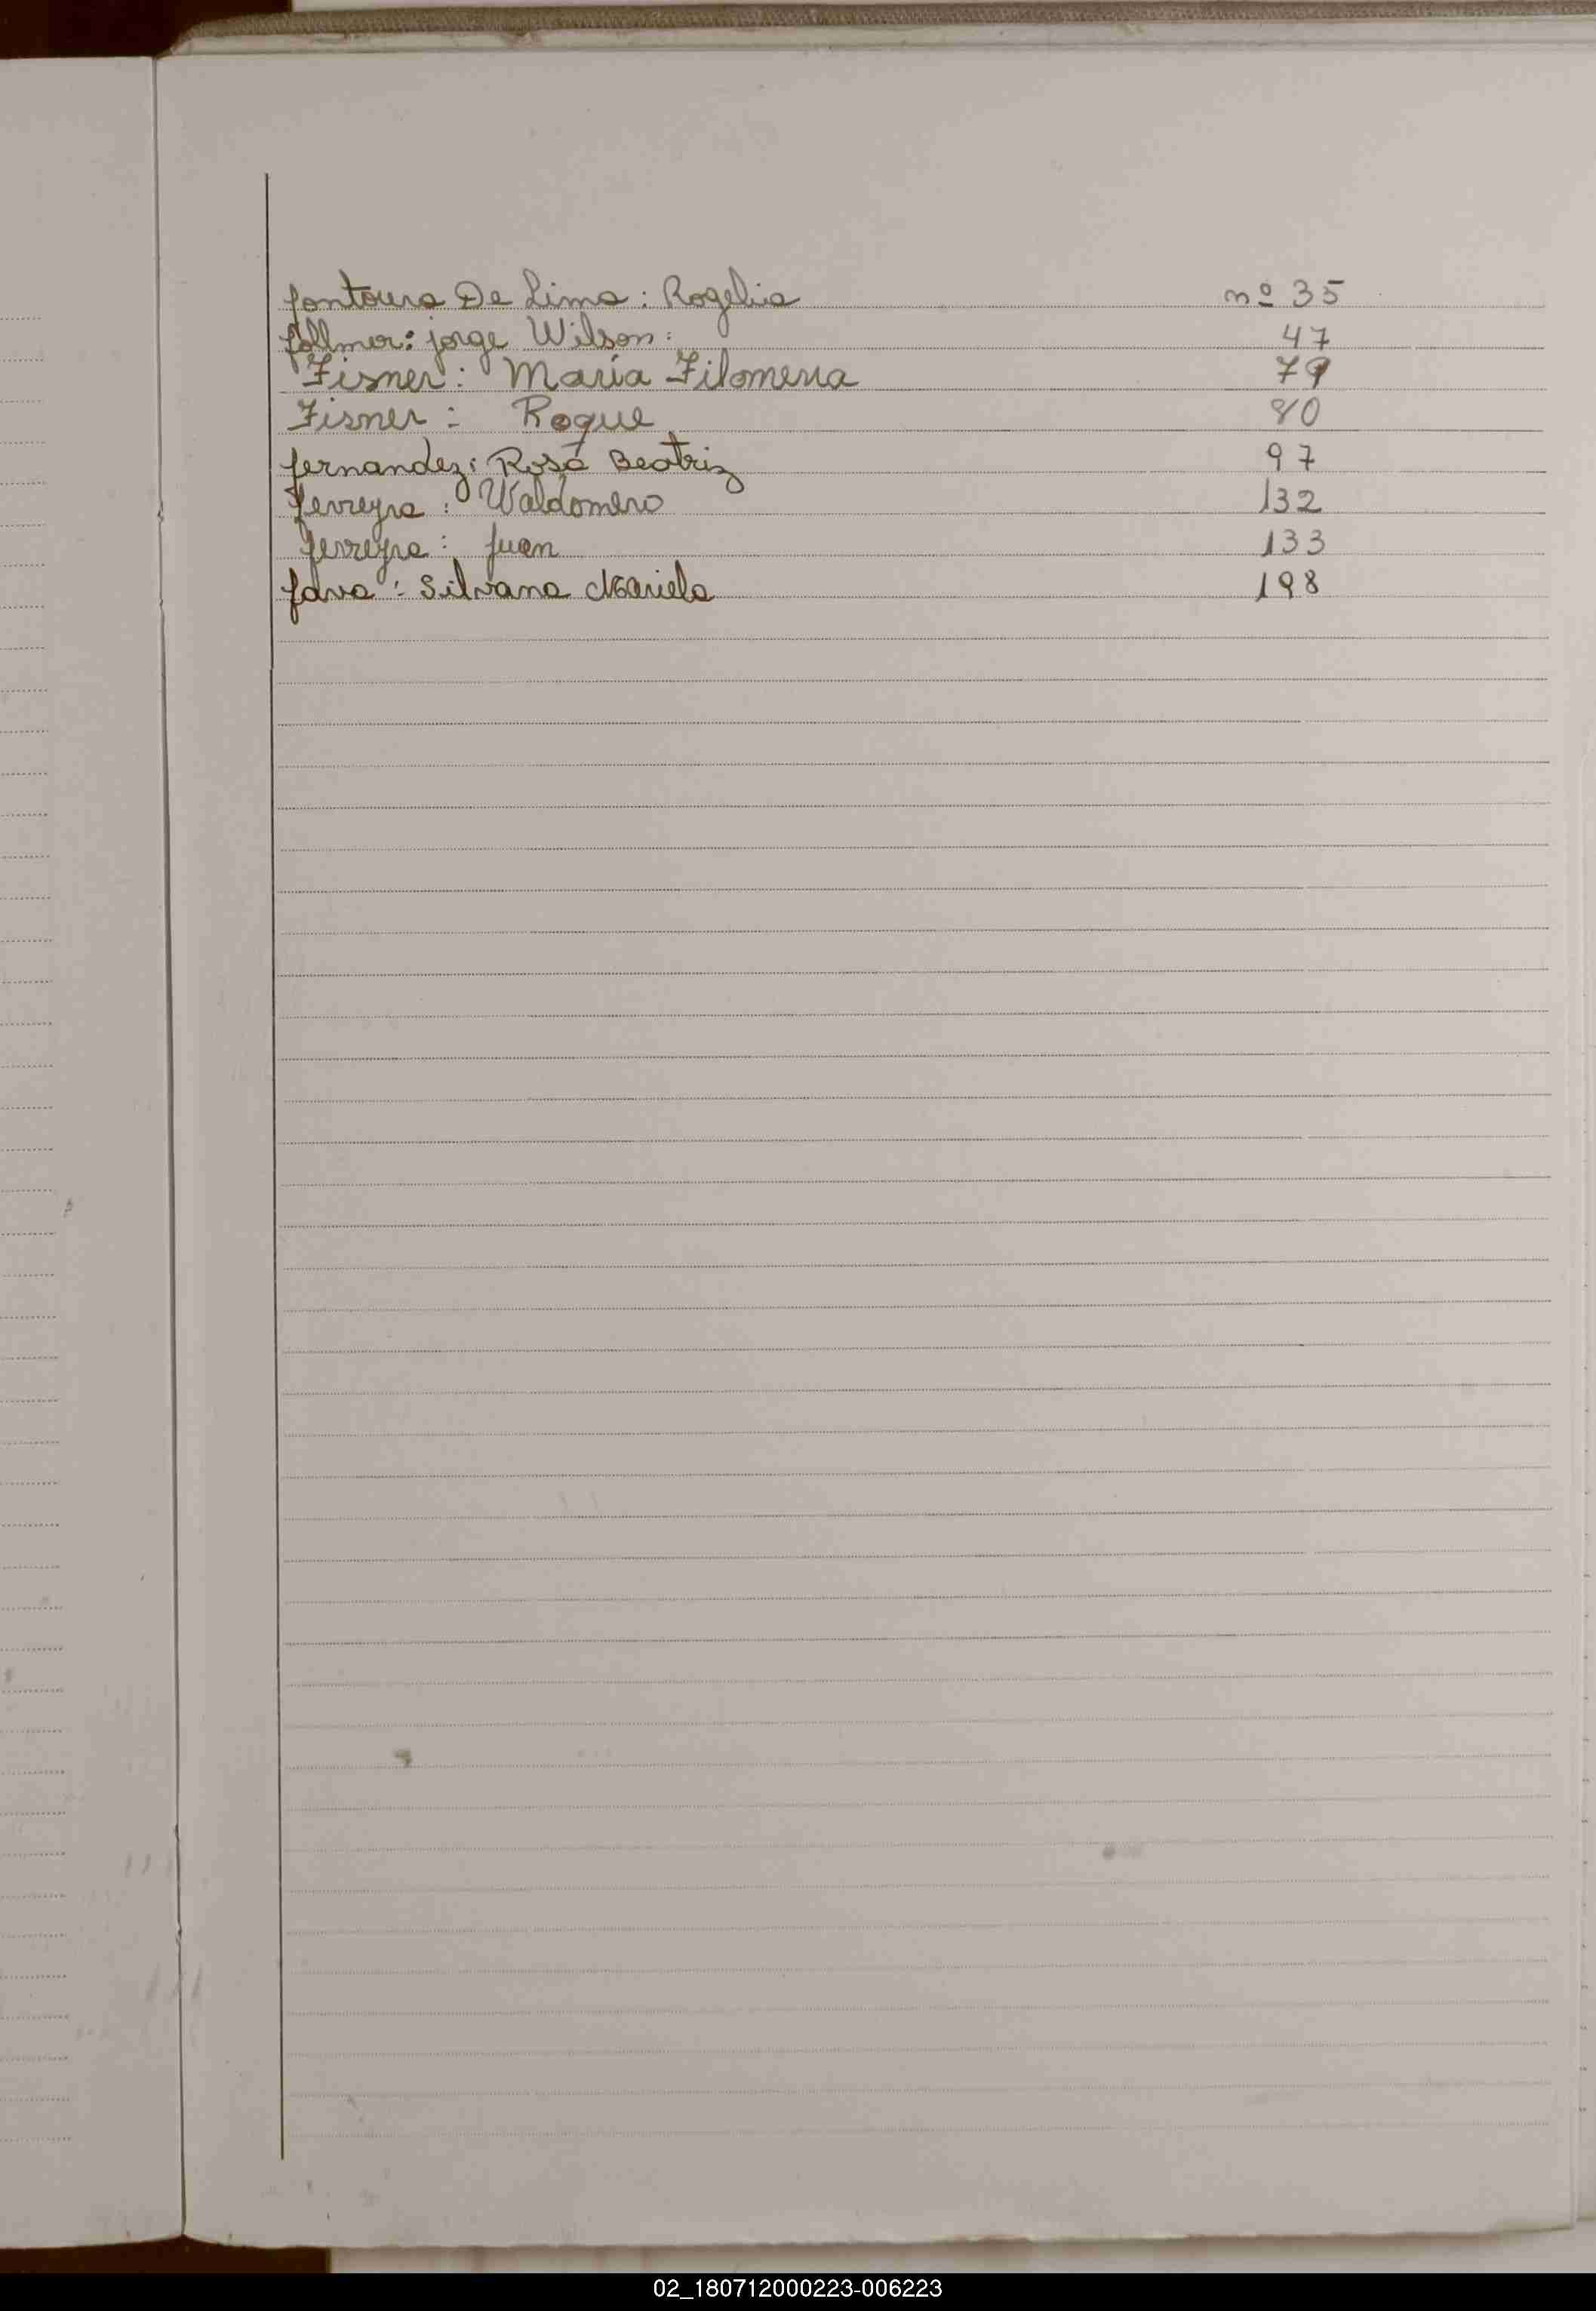 fontoura De Lima: Rogelia nº 35
follmer: jorge Wilson: 47
Fisner: María Filomena 79
Fisner: Roque 80
fernandez: Rosa Beatriz 97
ferreyra: Waldomero 132
ferreyra: juan 133
fava: Silvana Mariela 198
02_180712000223-006223